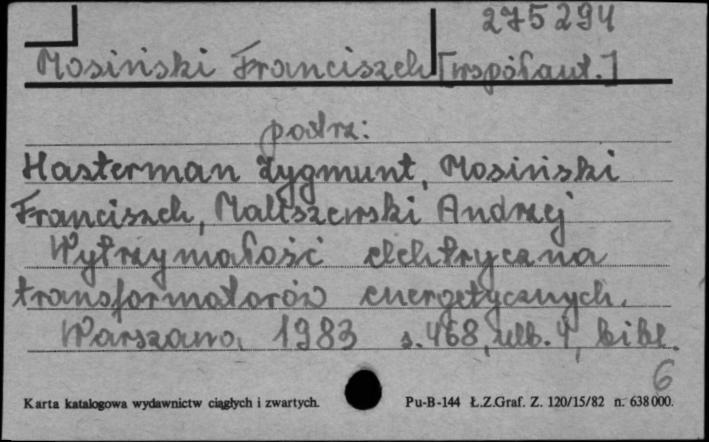 275294
Mosiński Franciszek [współaut.]
patrz:
Hasterman Zygmunt, Mosiński
Franciszek, Maliszewski Andrzej
Wytrzymałość elektryczna
transformatorów energetycznych.
Warszawa 1983 s. 468, nlb. 4, bibl.
6
Karta katalogowa wydawnictw ciągłych i zwartych.
Pu-B-144 Ł.Z.Graf. Z. 120/15/82 n. 638000.